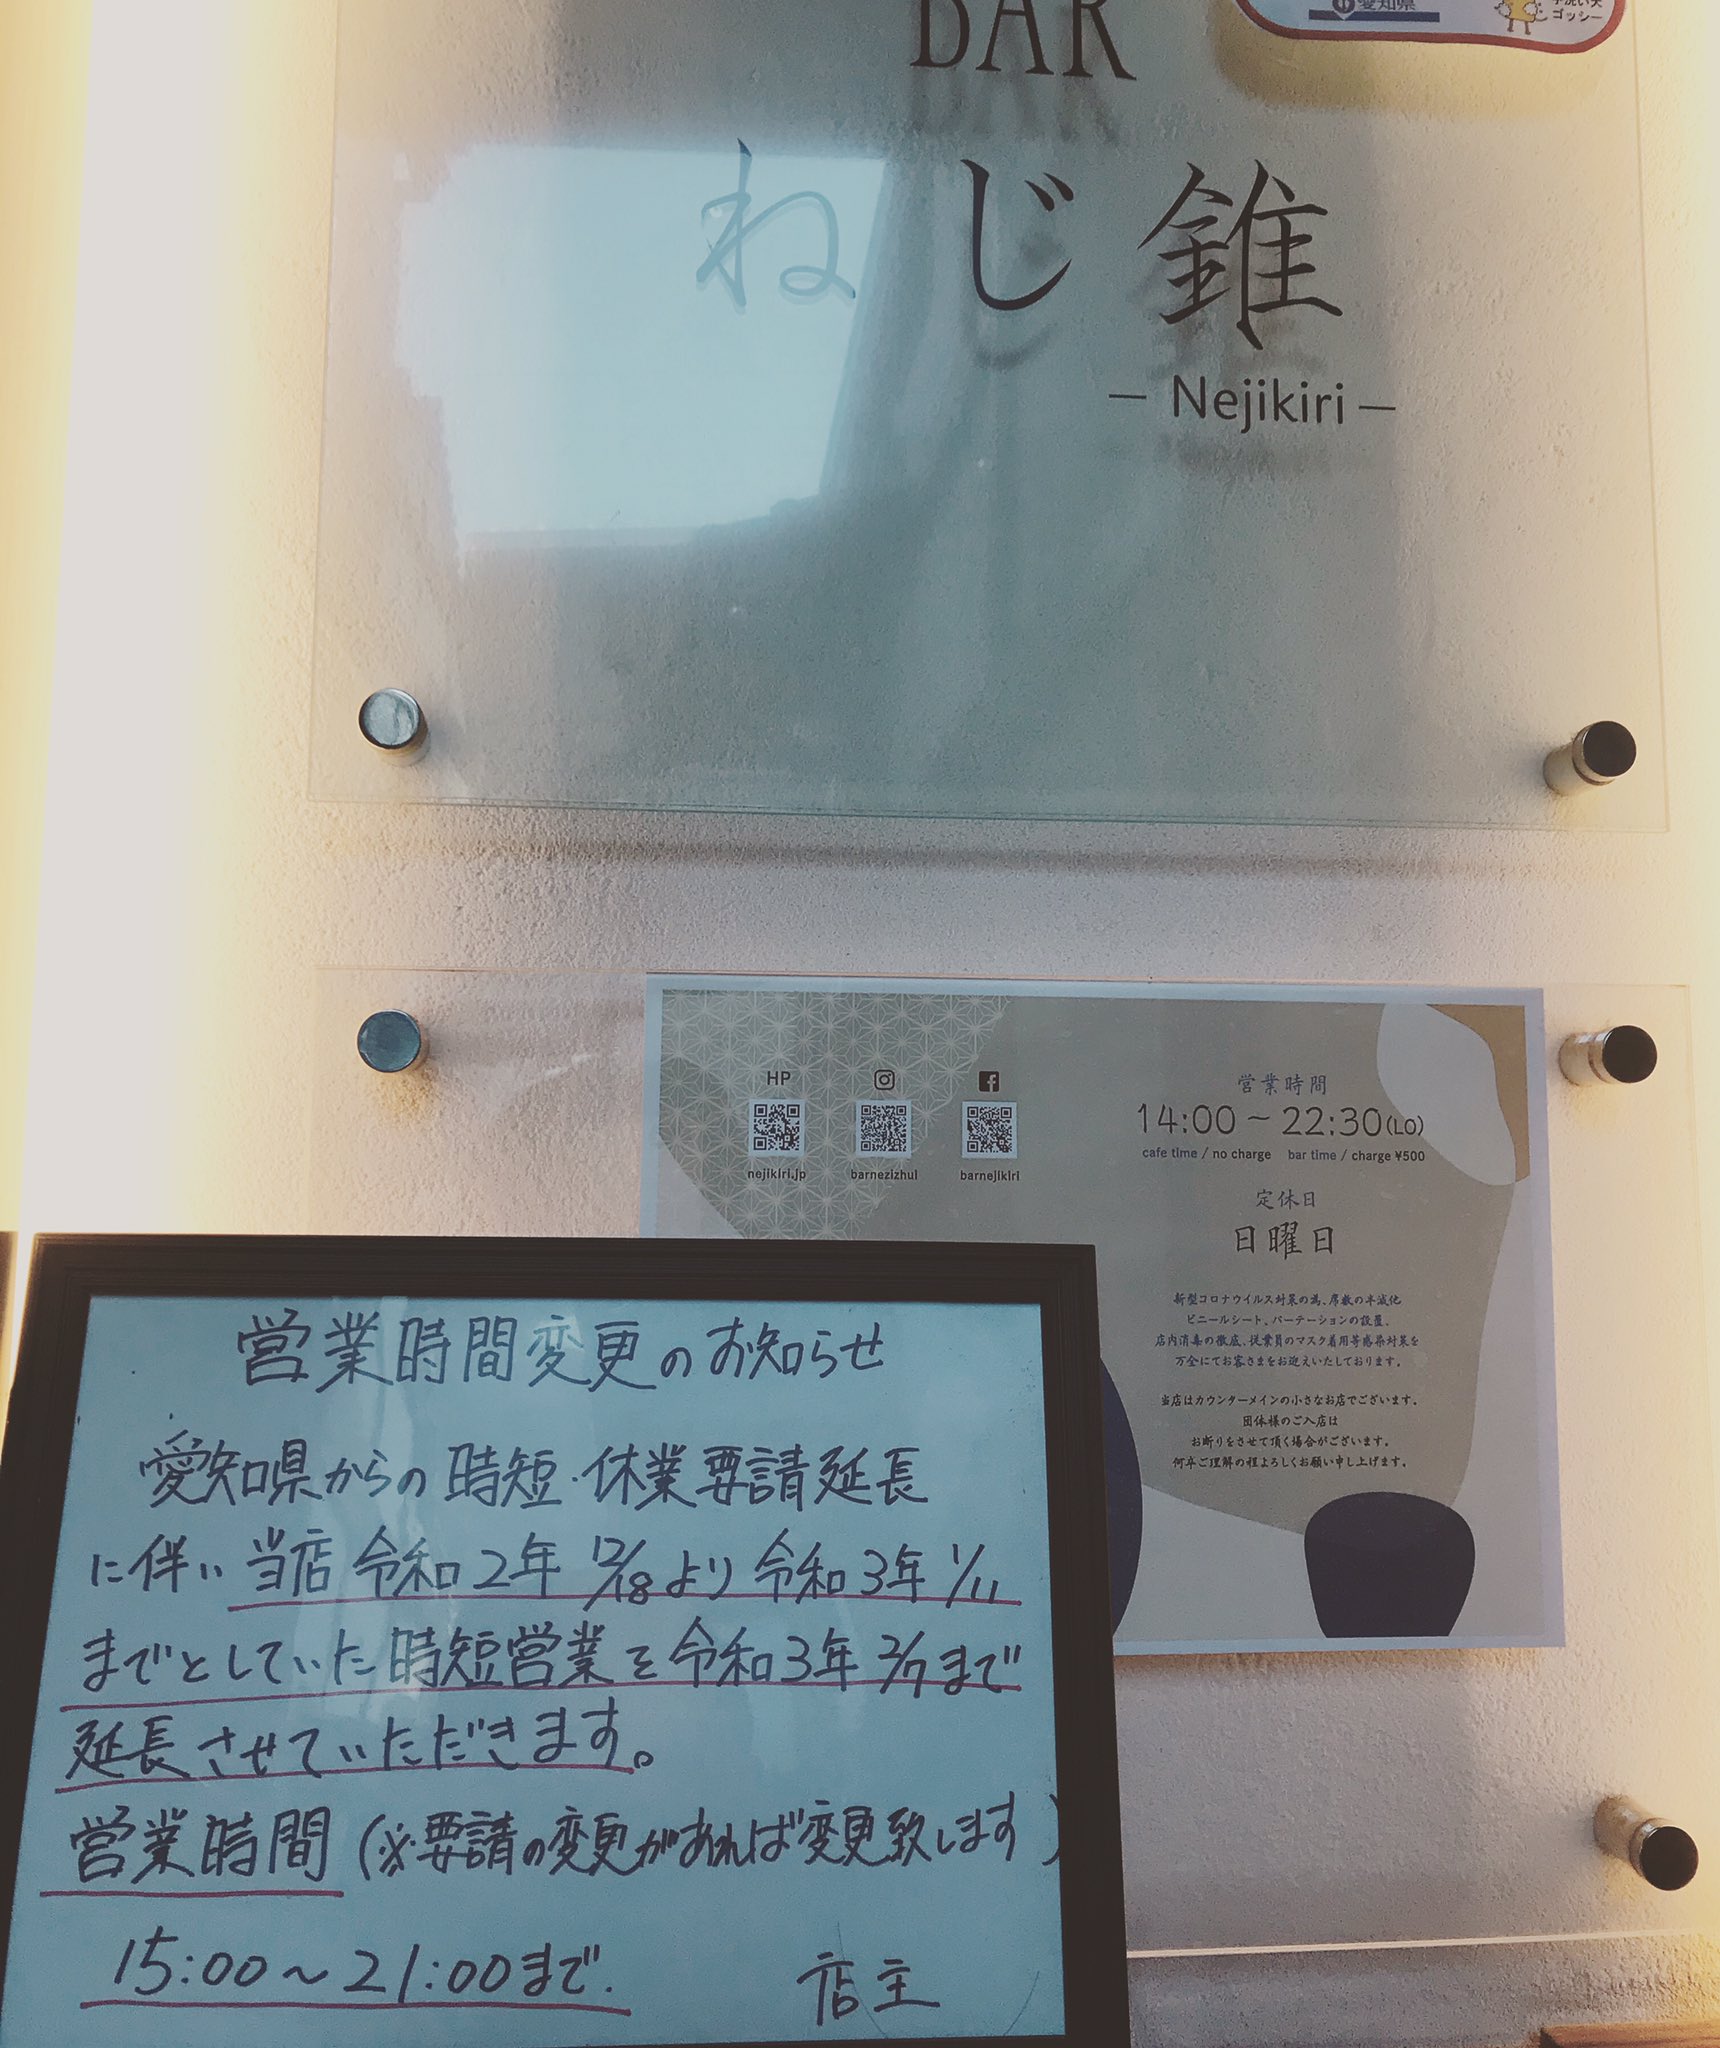 BAR
愛知県
手洗い犬
ゴッシー
ねじ錐
— Nejikiri —
HP
nejikiri.jp
barnezizhui
barnejikiri
営業時間
14:00～22:30(LO)
cafe time / no charge bar time / charge ¥500
定休日
日曜日
新型コロナウイルス対策の為、席数の半減化
ビニールシート、パーテーションの設置、
店内消毒の徹底、従業員のマスク着用等感染対策を
万全にてお客さまをお迎えいたしております。
当店はカウンターメインの小さなお店でございます。
団体様のご入店は
お断りをさせて頂く場合がございます。
何卒ご理解の程よろしくお願い申し上げます。
営業時間変更のお知らせ
愛知県からの時短・休業要請延長
に伴い当店令和2年12/18より令和3年1/11
までとしていた時短営業を令和3年2/7まで
延長させていただきます。
営業時間(※要請の変更があれば変更致します)
15:00～21:00まで.
店主